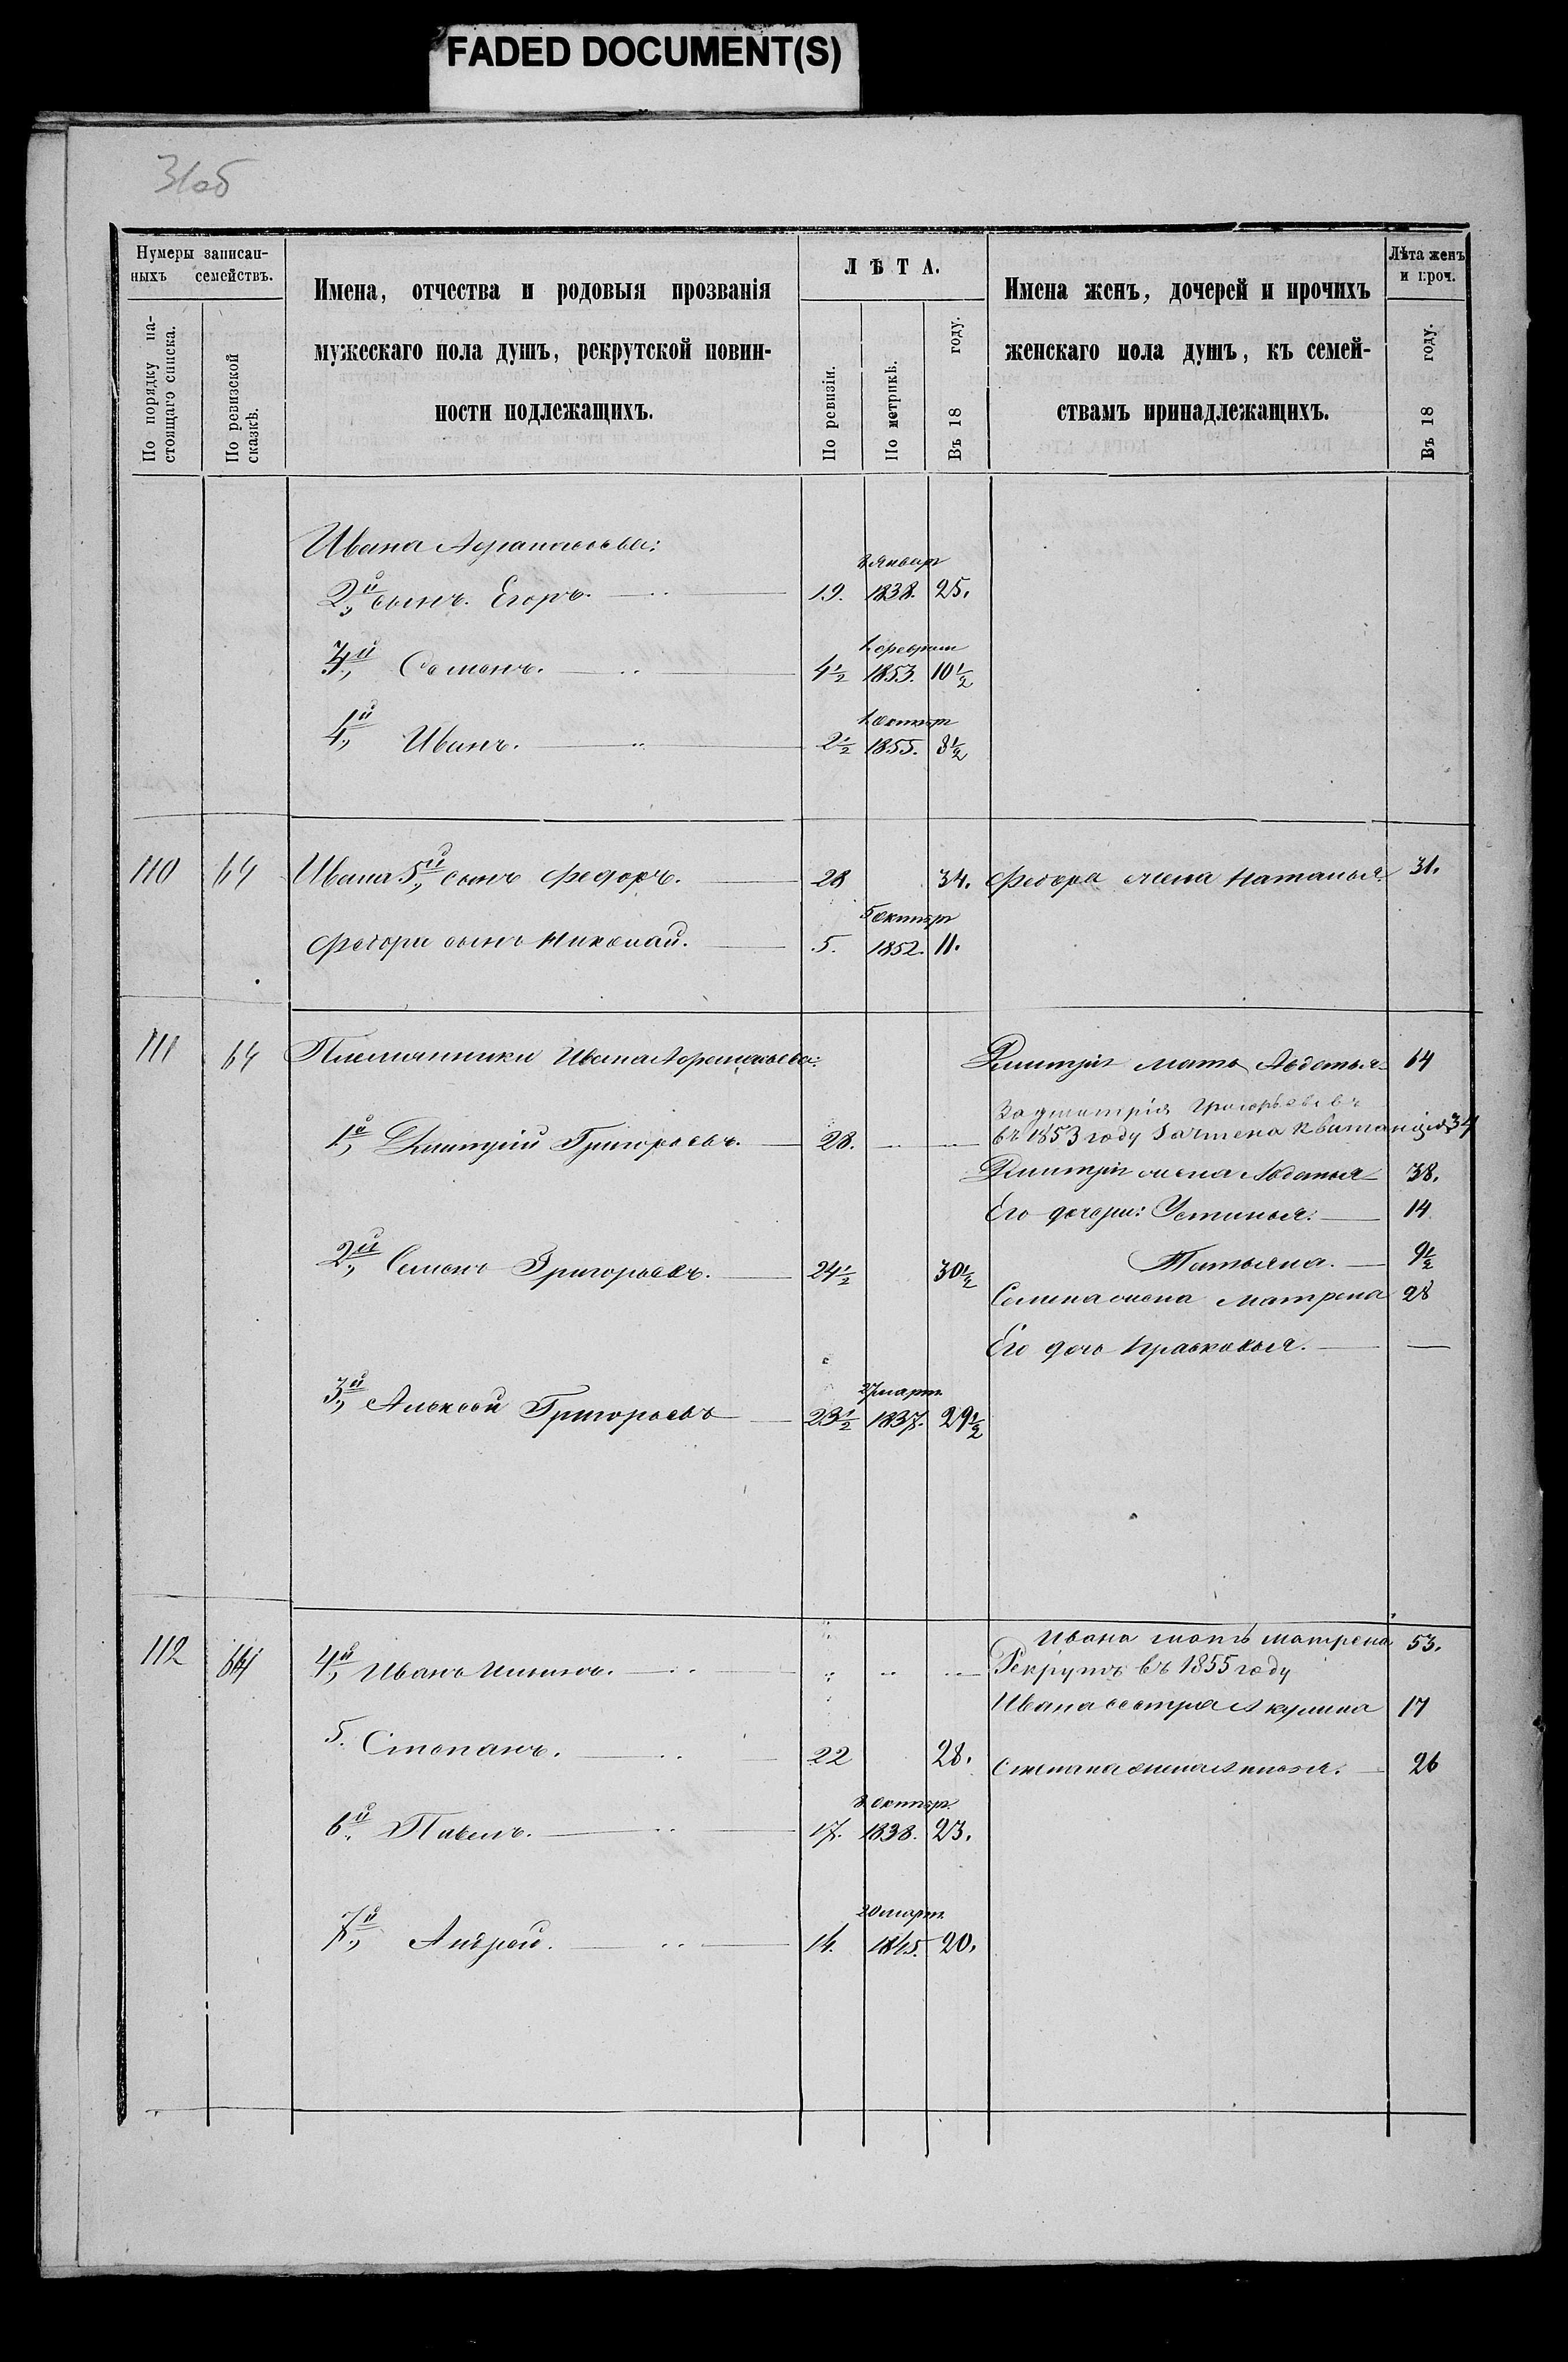 FADED DOCUMENT(S)
31об
Нумеры записан-
ныхъ семействъ.
По порядку на-
стоящаго списка.
По ревизской
сказкѣ.
Имена, отчества и родовыя прозванія
мужескаго пола душъ, рекрутской повин-
ности подлежащихъ.
ЛѢТА.
По ревизіи.
По метрикѣ.
Въ 18 году.
Имена женъ, дочерей и прочихъ
женскаго пола душъ, къ семей-
ствамъ принадлежащихъ.
Лѣта женъ
и проч.
Въ 18 году.
Ивана Афанасьева:
8 Январ
2й сынъ. Егоръ. 19. 1838. 25.
1 Феврал
3й Семенъ. 4½ 1853. 10½
1 Октяр
4й Иванъ. 2½ 1855. 8½
110 64 Ивана 5й сынъ Федоръ. 28 34. Федора жена Наталья. 31.
5 Октяр
Федора сынъ Николай. 5. 1852. 11.
111 64 Племянники Ивана Афанасьева: Дмитрія мать Авдотья 64
За Дмитрія Григорьева
въ 1853 году Зачтена Квитанція 34
1й Дмитрій Григорьевъ. 28.
Дмитрія жена Авдотья 38.
Его дочери: Устинья. 14
2й Семенъ Григорьевъ. 24½ 30½ Татьяна. 9½
Семена жена Матрена 28
Его дочь Прасковья.
27 март.
3й Алексѣй Григорьевъ 23½ 1837. 29½
112 64 Ивана мать Матрена 53.
4й Иванъ Рекрутъ въ 1855 году
Ивана сестра Акулина 17
5. Степанъ. 22 28. Степана жена 26
8 Октяр.
6й Павелъ. 17. 1838. 23.
20 март.
7й Андрей. 14. 1845. 20.